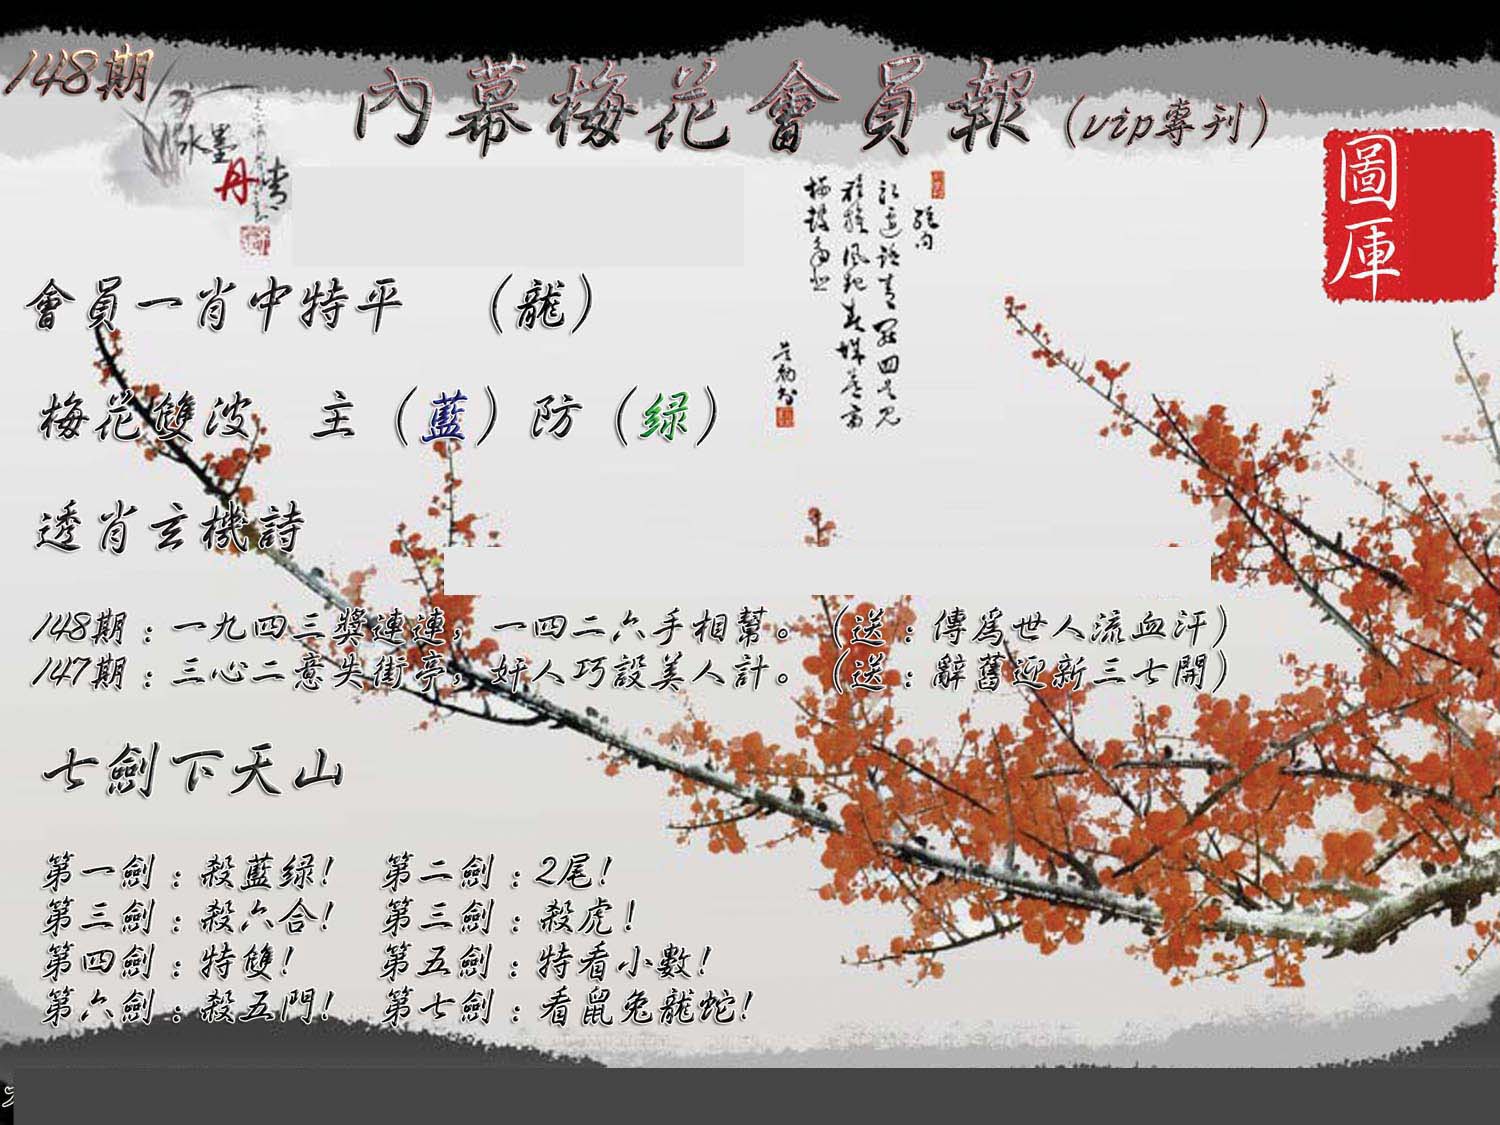 148期
內幕梅花會員報(vip專刊)
水墨
丹青
圖庫
會員一肖中特平 (龍)
梅花雙波 主(藍)防(绿)
透肖玄機詩
148期：一九四三獎連連，一四二六手相幫。(送：傳爲世人流血汗)
147期：三心二意失街亭，奸人巧設美人計。(送：辭舊迎新三七開)
七劍下天山
第一劍：殺藍绿! 第二劍：2尾!
第三劍：殺六合! 第三劍：殺虎!
第四劍：特雙! 第五劍：特看小數!
第六劍：殺五門! 第七劍：看鼠兔龍蛇!